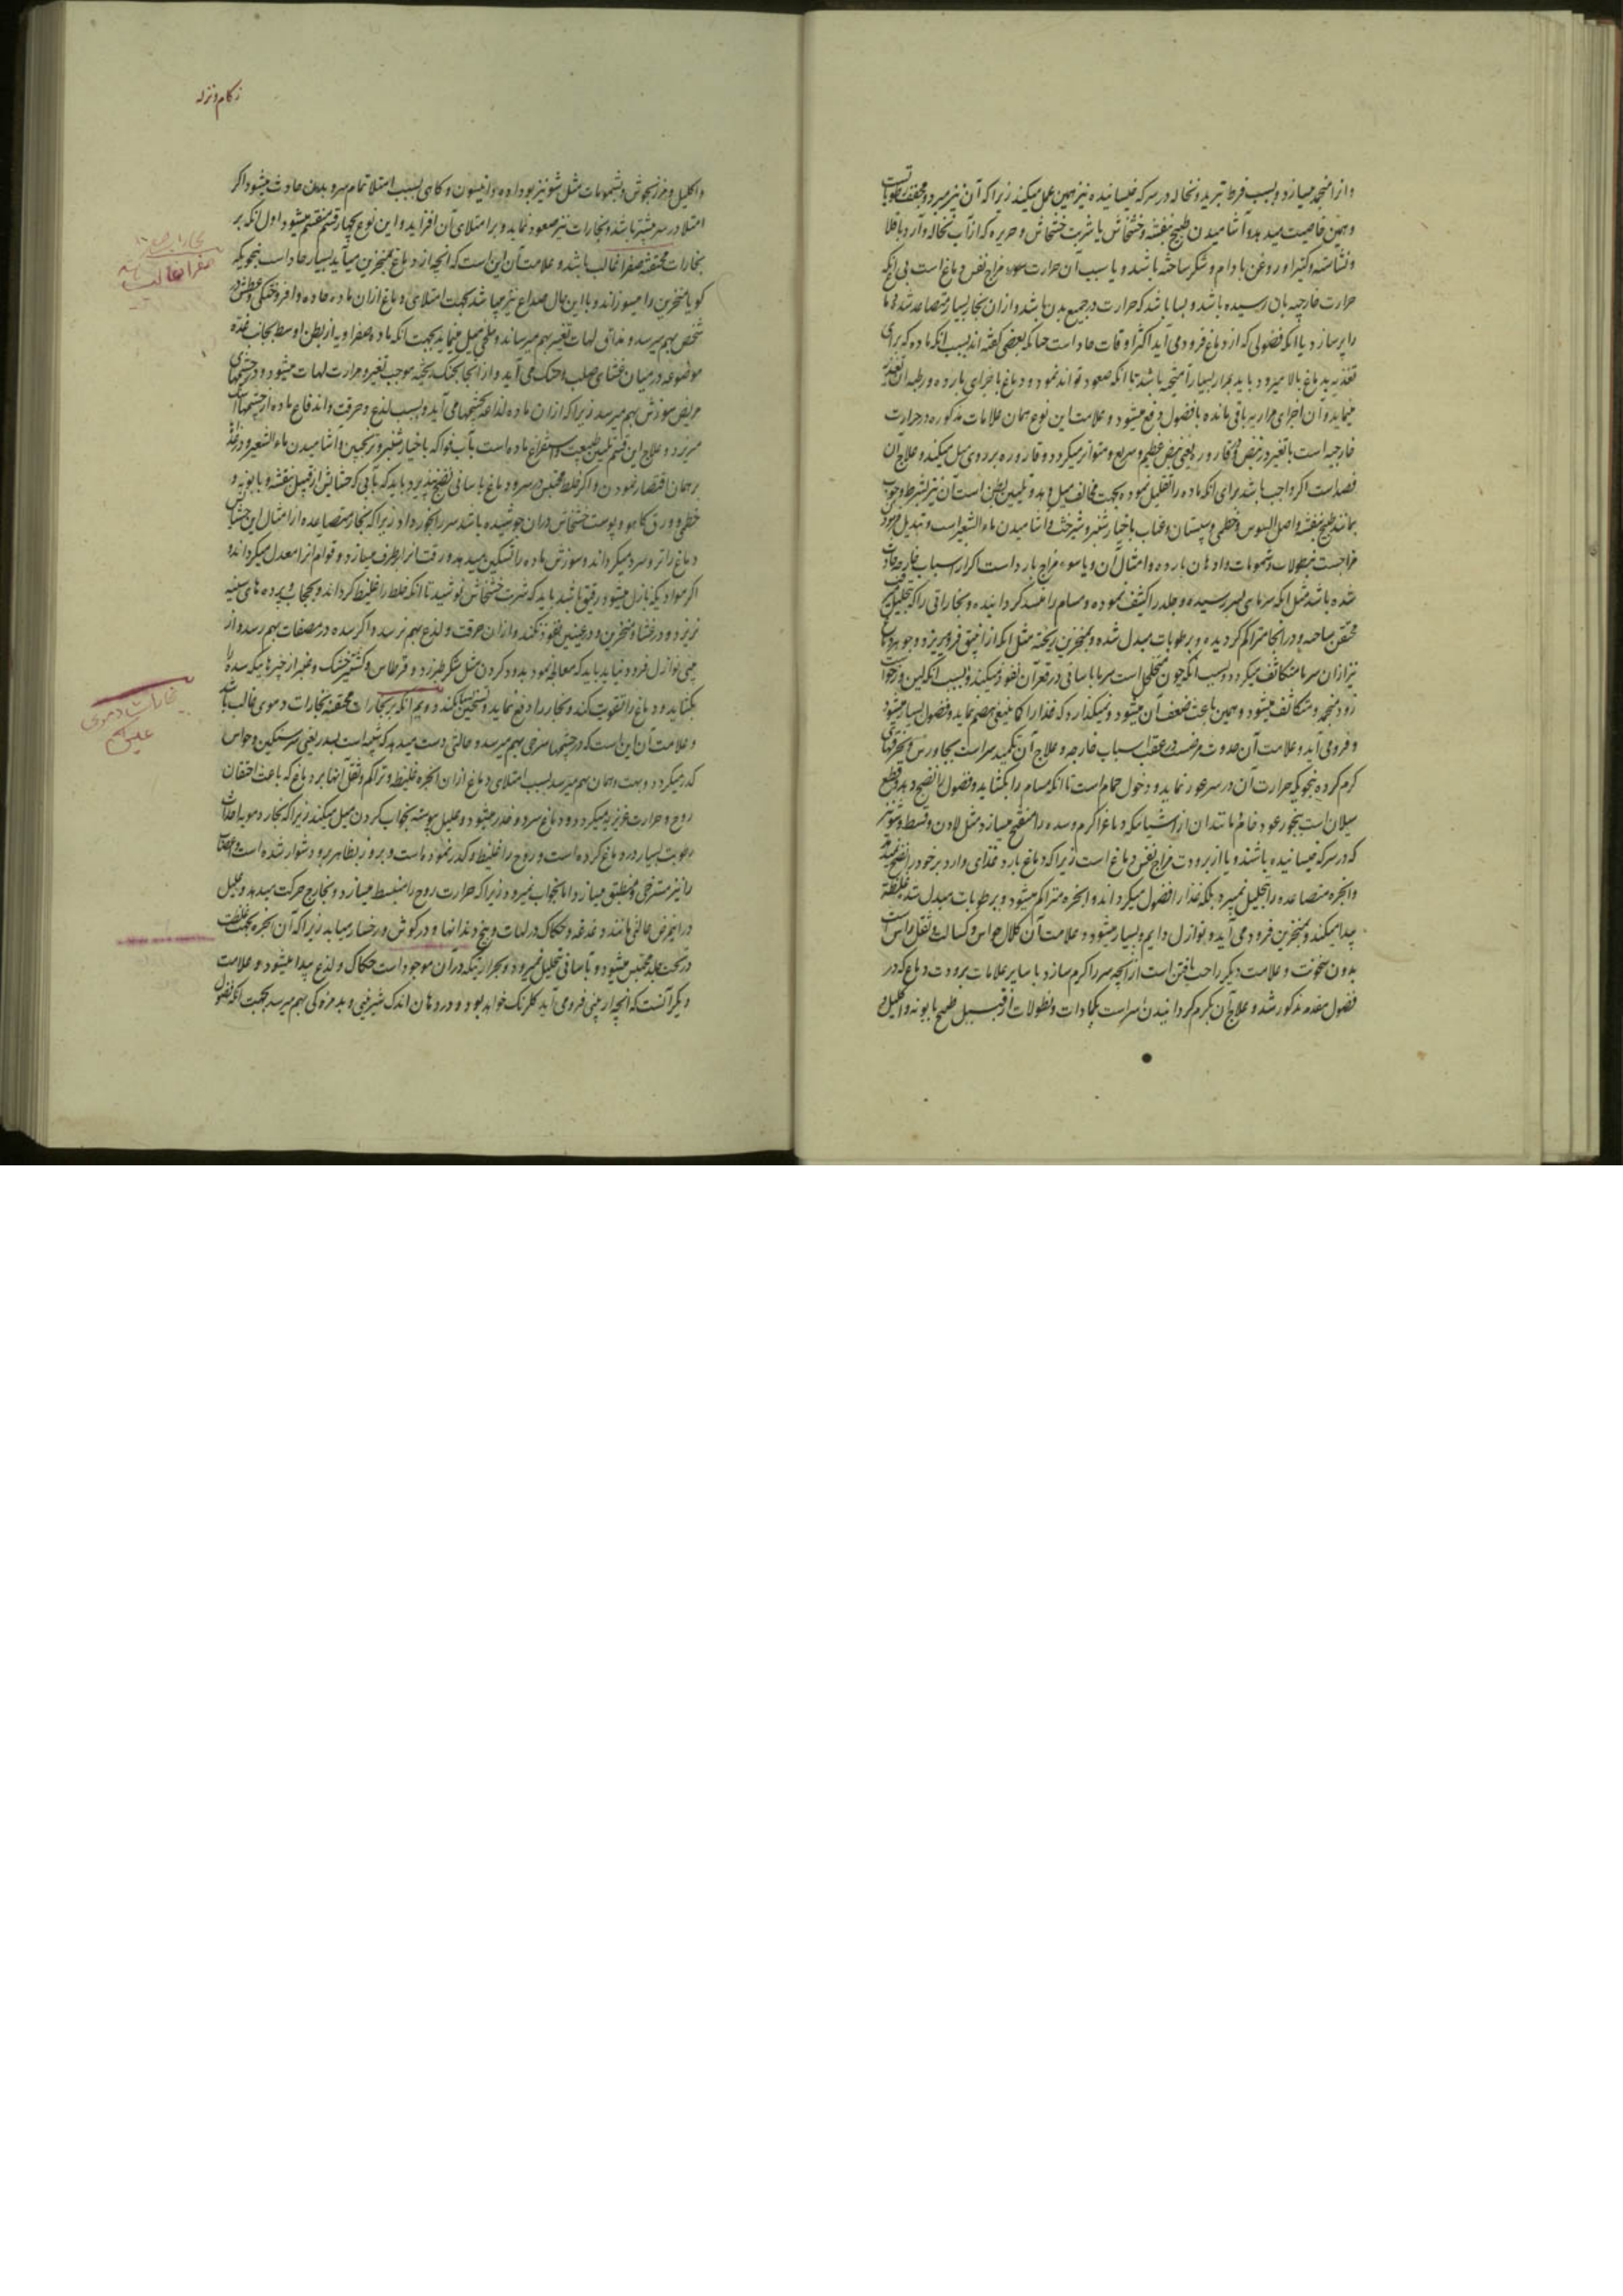 و از انجمد میسازد و بسبب فرط تبرید و نخاله در سرکه خیسانیده نیز همین عمل میکند زیرا که آن نیز مبرد و مجفف رطوبات است
و همین خاصیت میدهد و آشامیدن طبیخ بنفشه و خشخاش یا شربت خشخاش و حریره که از آب نخاله و آرد باقلا
و نشاسته و کتیرا و روغن بادام و شکر ساخته باشد و یا سبب آن حرارت سوء مزاج نفس دماغ است بی آنکه
حرارت خارجیه بآن رسیده باشد و بسا باشد که حرارت در جمیع بدن باشد و از آن بخار بسیار متصاعد شده
را پر سازد یا آنکه فضولی که از دماغ فرود می آید اکثر اوقات حاد است چنانکه بعضی گفته اند بسبب آنکه ماده که برای
تغذیه بدماغ بالا میرود باید بمرار بسیار آمیخته باشد تا آنکه صعود تواند نمود و دماغ با جزای بارده و رطبه آن تغذیه
مینماید و آن اجزای مراریه باقی مانده با فضول دفع میشود و علامت این نوع همان علامات مذکوره در حرارت
خارجیه است با تغیر در نبض و قاروره یعنی نبض عظیم و سریع و متواتر میگردد و قاروره بزردی میل میکند و علاج آن
فصد است اگر واجب باشد برای آنکه ماده را تقلیل نموده بجهت مخالف میل دهد و تلیین بطن است آن نیز بشرط وجوب
بمانند طبیخ بنفشه و اصل السوس و خطمی و سپستان و عناب با خیار شنبر و شیرخشت و آشامیدن ماء الشعیر است و تبدیل سوء
مزاجست بنطولات و شمومات و ادهان بارده و امثال آن و یا سوء مزاج بارد است اگر از اسباب خارجه حادث
شده باشد مثل آنکه سرمای بسر رسیده و جلد را کثیف نموده و مسام را منسد گردانیده و بخاراتی را که بتحلیل
محتقن ساخته و در آنجا متراکم گردیده و برطوبات مبدل شده و بمنخرین ریخته مثل آنکه از انبیق فرو میریزد و جوهر دماغ
نیز از آن سرما متکاثف میگردد و بسبب آنکه چون متخلخل است سرما بآسانی در قعر آن نفوذ میکند و بسبب آنکه لین و رخو است
زود منجمد و متکاثف میشود و همین باعث ضعف آن میشود و نمیگذارد که غذا را کما ینبغی هضم نماید و فضول بسیار میشود
و فرو می آید و علامت آن حدوث مرضست در عقب اسباب خارجه و علاج آن تکمید سر است بجاورس و بخرقهای
گرم کرده بنحویکه حرارت آن در سر غور نماید و دخول حمام است تا آنکه مسام را بگشاید و فضول را نضج دهد و قطع
سیلان است ببخور عود خام مانند آن از اشیائیکه دماغ را گرم و سده را مفتح میسازد مثل لادن و قسط و شونیز
که در سرکه خیسانیده باشند و یا از برودت مزاج نفس دماغ است زیرا که دماغ بارد غذای وارد بر خود را نضج نمیدهد
و ابخره متصاعده را تحلیل نمیبرد بلکه غذا را فضول میگرداند و ابخره متراکم میشود و برطوبات مبدل شده غلظتی
پیدا میکند و بمنخرین فرود می آید و نوازل دایم و بسیار میشود و علامت آن کلال حواس و کسالت و ثقل راس است
بدون سخونت و علامت دیگر راحت یافتن است از آنچه سر را گرم سازد با سایر علامات برودت دماغ که در
فضول مقدمه مذکور شد و علاج آن بگرم گردانیدن سر است بکمادات و نطولات از قبیل طبیخ بابونه و اکلیل
زکام و نزله
و اکلیل و مرزنجوش و بشمومات مثل شونیز بو داده و انیسون و گاهی بسبب امتلا تمام سر و بدن حادث میشود اگر
امتلا در سر بیشتر باشد و بخارات نیز صعود نماید و بر امتلای آن افزاید و این نوع بچهار قسم منقسم میشود اول آنکه بر
بخارات محتقنه صفرا غالب باشد و علامت آن این است که آنچه از دماغ بمنخرین میآید بسیار حاد است بنحویکه
گویا منخرین را میسوزاند و با این حال صداع نیز میباشد بجهت امتلای دماغ از آن ماده حاده و افروختگی و عطش در
شخص بهم میرسد و مذاق لهات تغییر بهم میرساند و بتلخی میل مینماید بجهت آنکه ماده صفراویه از بطن اوسط بجانب غده
موضوعه در میان غشای صلب و حنک می آید و از آنجا بحنک ریخته موجب تغیر و حرارت لهات میشود و در چشمهای
مریض سوزش بهم میرسد زیرا که از آن ماده لذاعه بچشمها می آید و بسبب لذع و حرقت و اندفاع ماده از چشمها اشک
میریزد و علاج این قسم تلیین طبیعت و استفراغ ماده است بآب فواکه با خیار شنبر و ترنجبین و آشامیدن ماء الشعیر و در غذا
بر همان اقتصار نمودن و اگر خلط محتبس در سر و دماغ بآسانی نضج نپذیرد باید که بآبی که حشایش از قبیل بنفشه و بابونه و
خطمی و ورق کاهو و پوست خشخاش در آن جوشیده باشد سر را بخور داد زیرا که بخار متصاعده از امثال این حشایش
دماغ را تر و سرد میگرداند و سوزش ماده را تسکین میدهد و رقت آنرا برطرف میسازد و قوام آنرا معدل میگرداند و
اگر موادیکه نازل میشود رقیق باشد باید که شربت خشخاش نوشید تا آنکه خلط را غلیظ گرداند و بحجاب و پرده های سینه
نریزد و در غشاء منخرین و در عینین نفوذ نکند و از آن حرقت و لذع بهم نرسد و اگر سده در مصفات بهم رسد و از
بینی نوازل فرود نیاید باید که معالجه نمود بدود کردن مثل شکر طبرزد و قرطاس و کشنیز خشک و عنبر از چیزهاییکه سده را
بگشاید و دماغ را تقویت کند و بخار را دفع نماید و تسخین نکند دویم آنکه بر بخارات محتقنه بخارات دموی غالب باشد
و علامت آن این است که در چشمها سرخی بهم میرسد و حالتی دست میدهد که شبیه است بسدر یعنی سر سنگین و حواس
کدر میگردد و بهت و همان بهم میرسد بسبب امتلای دماغ از آن ابخره غلیظه و تراکم و ثقل آنها بر دماغ که باعث اختقان
روح و حرارت غریزیه میگردد و دماغ سرد و خدر میشود و علیل پیوسته بخواب کردن میل میکند زیرا که بخار دمویه احداث
رطوبت بسیار در دماغ کرده است و روح را غلیظ و کدر نموده است و بروز بظاهر برو دشوار شده است و اعصاب
را نیز مسترخی و منطبق میسازد اما بخواب نمیرود زیرا که حرارت روح را منبسط میسازد و بخارج حرکت میدهد و علیل
در این مرض حالتی مانند دغدغه و حکاک در لهات و بیخ دندانها و در گوش و رخسار مییابد زیرا که آن ابخره بجهت غلظت
در تحت جلد محتبس میشود و بآسانی تحلیل نمیرود و بحرارتیکه در آن موجود است حکاک و لذع پیدا میشود و علامت
دیگر آنست که آنچه از بینی فرو می آید گلرنگ خواهد بود و در دهان اندک شیرینی و بد مزه گی بهم میرسد بجهت آنکه فضول
صفرا غالب باشد
بخارات دموی